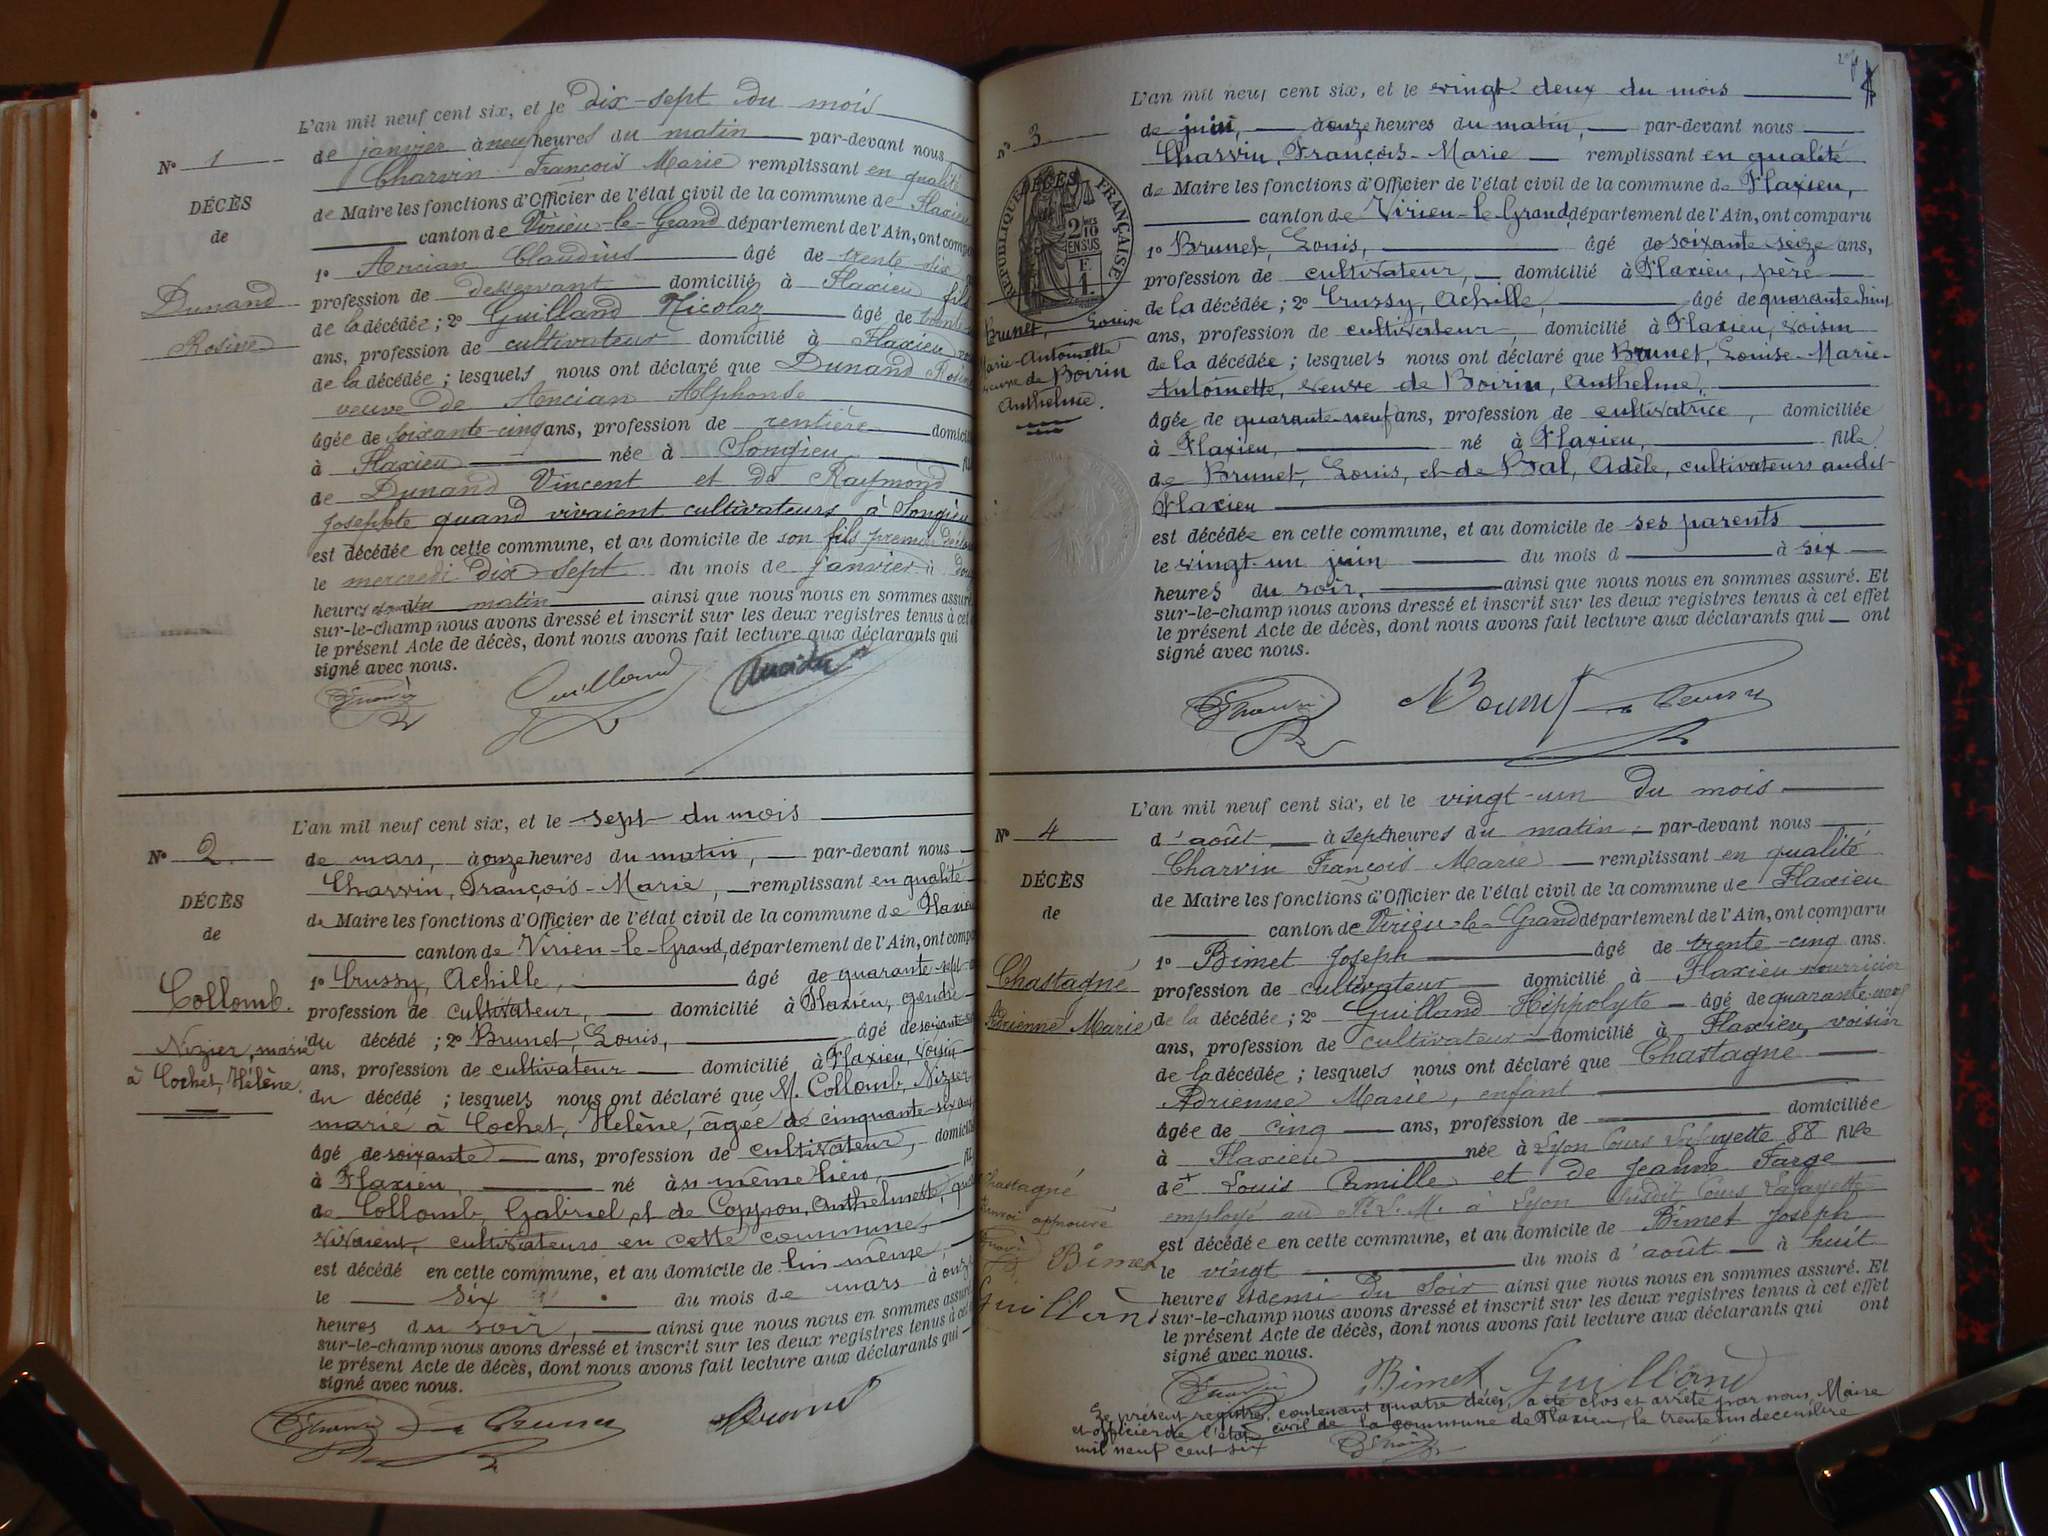 L'an mil neuf cent six, et le dix-sept du mois
Nº 1
de janvier à neuf heures du matin par-devant nous
Charvin François Marie remplissant en qualité
DÉCÈS
de Maire les fonctions d'Officier de l'état civil de la commune de Flaxieu
de
canton de Virieu-le-Grand département de l'Ain, ont comp
1º Ancian Claudius âgé de trente six
Dunand
profession de desservant domicilié à Flaxieu fils
de la décédée ; 2º Guilland Nicolas âgé de trente
Rosine
ans, profession de cultivateur domicilié à Flaxieu
de la décédée ; lesquels nous ont déclaré que Dunand Rosine
veuve de Ancian Alphonse
âgée de soixante-cinq ans, profession de rentière domicil
à Flaxieu née à Songieu
de Dunand Vincent et de Raymond
Josephte quand vivaient cultivateurs à Songieu
est décédée en cette commune, et au domicile de son fils premier
le mercredi dix sept du mois de janvier à
heures du matin ainsi que nous nous en sommes assuré
sur-le-champ nous avons dressé et inscrit sur les deux registres tenus à cet
le présent Acte de décès, dont nous avons fait lecture aux déclarants qui
signé avec nous.
Charvin Guilland Ancian
L'an mil neuf cent six, et le sept du mois
Nº 2.
de mars, à onze heures du matin, par-devant nous
Charvin, François-Marie, remplissant en qualité
DÉCÈS
de Maire les fonctions d'Officier de l'état civil de la commune de Flaxieu
de
canton de Virieu-le-Grand, département de l'Ain, ont comp
1º Crussy, Achille, âgé de quarante-sept
Collomb.
profession de cultivateur, domicilié à Flaxieu, gendre
Nizier, marié
du décédé ; 2º Brunet, Louis, âgé de soixante
à Cochet, Hélène.
ans, profession de cultivateur domicilié à Flaxieu voisin
du décédé ; lesquels nous ont déclaré que M. Collomb, Nizier
marié à Cochet, Hélène, âgée de cinquante-six ans,
âgé de soixante ans, profession de cultivateur, domicilié
à Flaxieu, né au même lieu,
de Collomb, Gabriel et de Coppon, Anthelmette,
vivaient, cultivateurs en cette commune,
est décédé en cette commune, et au domicile de lui même,
le six du mois de mars à onze
heures du soir, ainsi que nous nous en sommes assuré
sur-le-champ nous avons dressé et inscrit sur les deux registres tenus à cet
le présent Acte de décès, dont nous avons fait lecture aux déclarants qui
signé avec nous.
Charvin Crussy Brunet
L'an mil neuf cent six, et le vingt deux du mois
nº 3
de juin, à onze heures du matin, par-devant nous
Charvin, François-Marie remplissant en qualité
DÉCÈS
RÉPUBLIQUE FRANÇAISE
2/10 EN SUS
E.
1.
de Maire les fonctions d'Officier de l'état civil de la commune de Flaxieu,
canton de Virieu-le-Grand, département de l'Ain, ont comparu
1º Brunet, Louis, âgé de soixante seize ans,
profession de cultivateur, domicilié à Flaxieu, père
de la décédée ; 2º Crussy, Achille, âgé de quarante-huit
Brunet, Louise
ans, profession de cultivateur, domicilié à Flaxieu, voisin
Marie-Antoinette
de la décédée ; lesquels nous ont déclaré que Brunet, Louise-Marie-
veuve de Boirin
Antoinette, veuve de Boirin, Anthelme,
Anthelme.
âgée de quarante-neuf ans, profession de cultivatrice, domiciliée
à Flaxieu, né à Flaxieu, fille
de Brunet, Louis, et de Vial, Adèle, cultivateurs audit
Flaxieu
est décédée en cette commune, et au domicile de ses parents
le vingt-un juin du mois d à six
heures du soir, ainsi que nous nous en sommes assuré. Et
sur-le-champ nous avons dressé et inscrit sur les deux registres tenus à cet effet
le présent Acte de décès, dont nous avons fait lecture aux déclarants qui ont
signé avec nous.
Charvin Brunet Crussy
L'an mil neuf cent six, et le vingt-un du mois
Nº 4
d'août à sept heures du matin, par-devant nous
Charvin François Marie remplissant en qualité
DÉCÈS
de Maire les fonctions d'Officier de l'état civil de la commune de Flaxieu
de
canton de Virieu-le-Grand département de l'Ain, ont comparu
1º Bimet Joseph âgé de trente-cinq ans.
Chastagné
profession de cultivateur domicilié à Flaxieu nourricier
Adrienne Marie
de la décédée ; 2º Guilland Hippolyte âgé de quarante-neuf
ans, profession de cultivateur domicilié à Flaxieu, voisin
de la décédée ; lesquels nous ont déclaré que Chastagné
Adrienne Marie, enfant
âgée de cinq ans, profession de domiciliée
à Flaxieu née à Lyon Cours Lafayette 88 fille
de Louis Camille et de Jeanne Farge
Chastagné
employé au P. L. M. à Lyon susdit Cours Lafayette
renvoi approuvé
est décédée en cette commune, et au domicile de Bimet Joseph
Charvin Bimet
le vingt du mois d'août à huit
heures et demi du soir ainsi que nous nous en sommes assuré. Et
Guilland
sur-le-champ nous avons dressé et inscrit sur les deux registres tenus à cet effet
le présent Acte de décès, dont nous avons fait lecture aux déclarants qui ont
signé avec nous.
Charvin Bimet Guilland
Le présent registre, contenant quatre décès, a été clos et arrêté par nous, Maire
et officier de l'état civil de la commune de Flaxieu, le trente un decembre
mil neuf cent six
Charvin